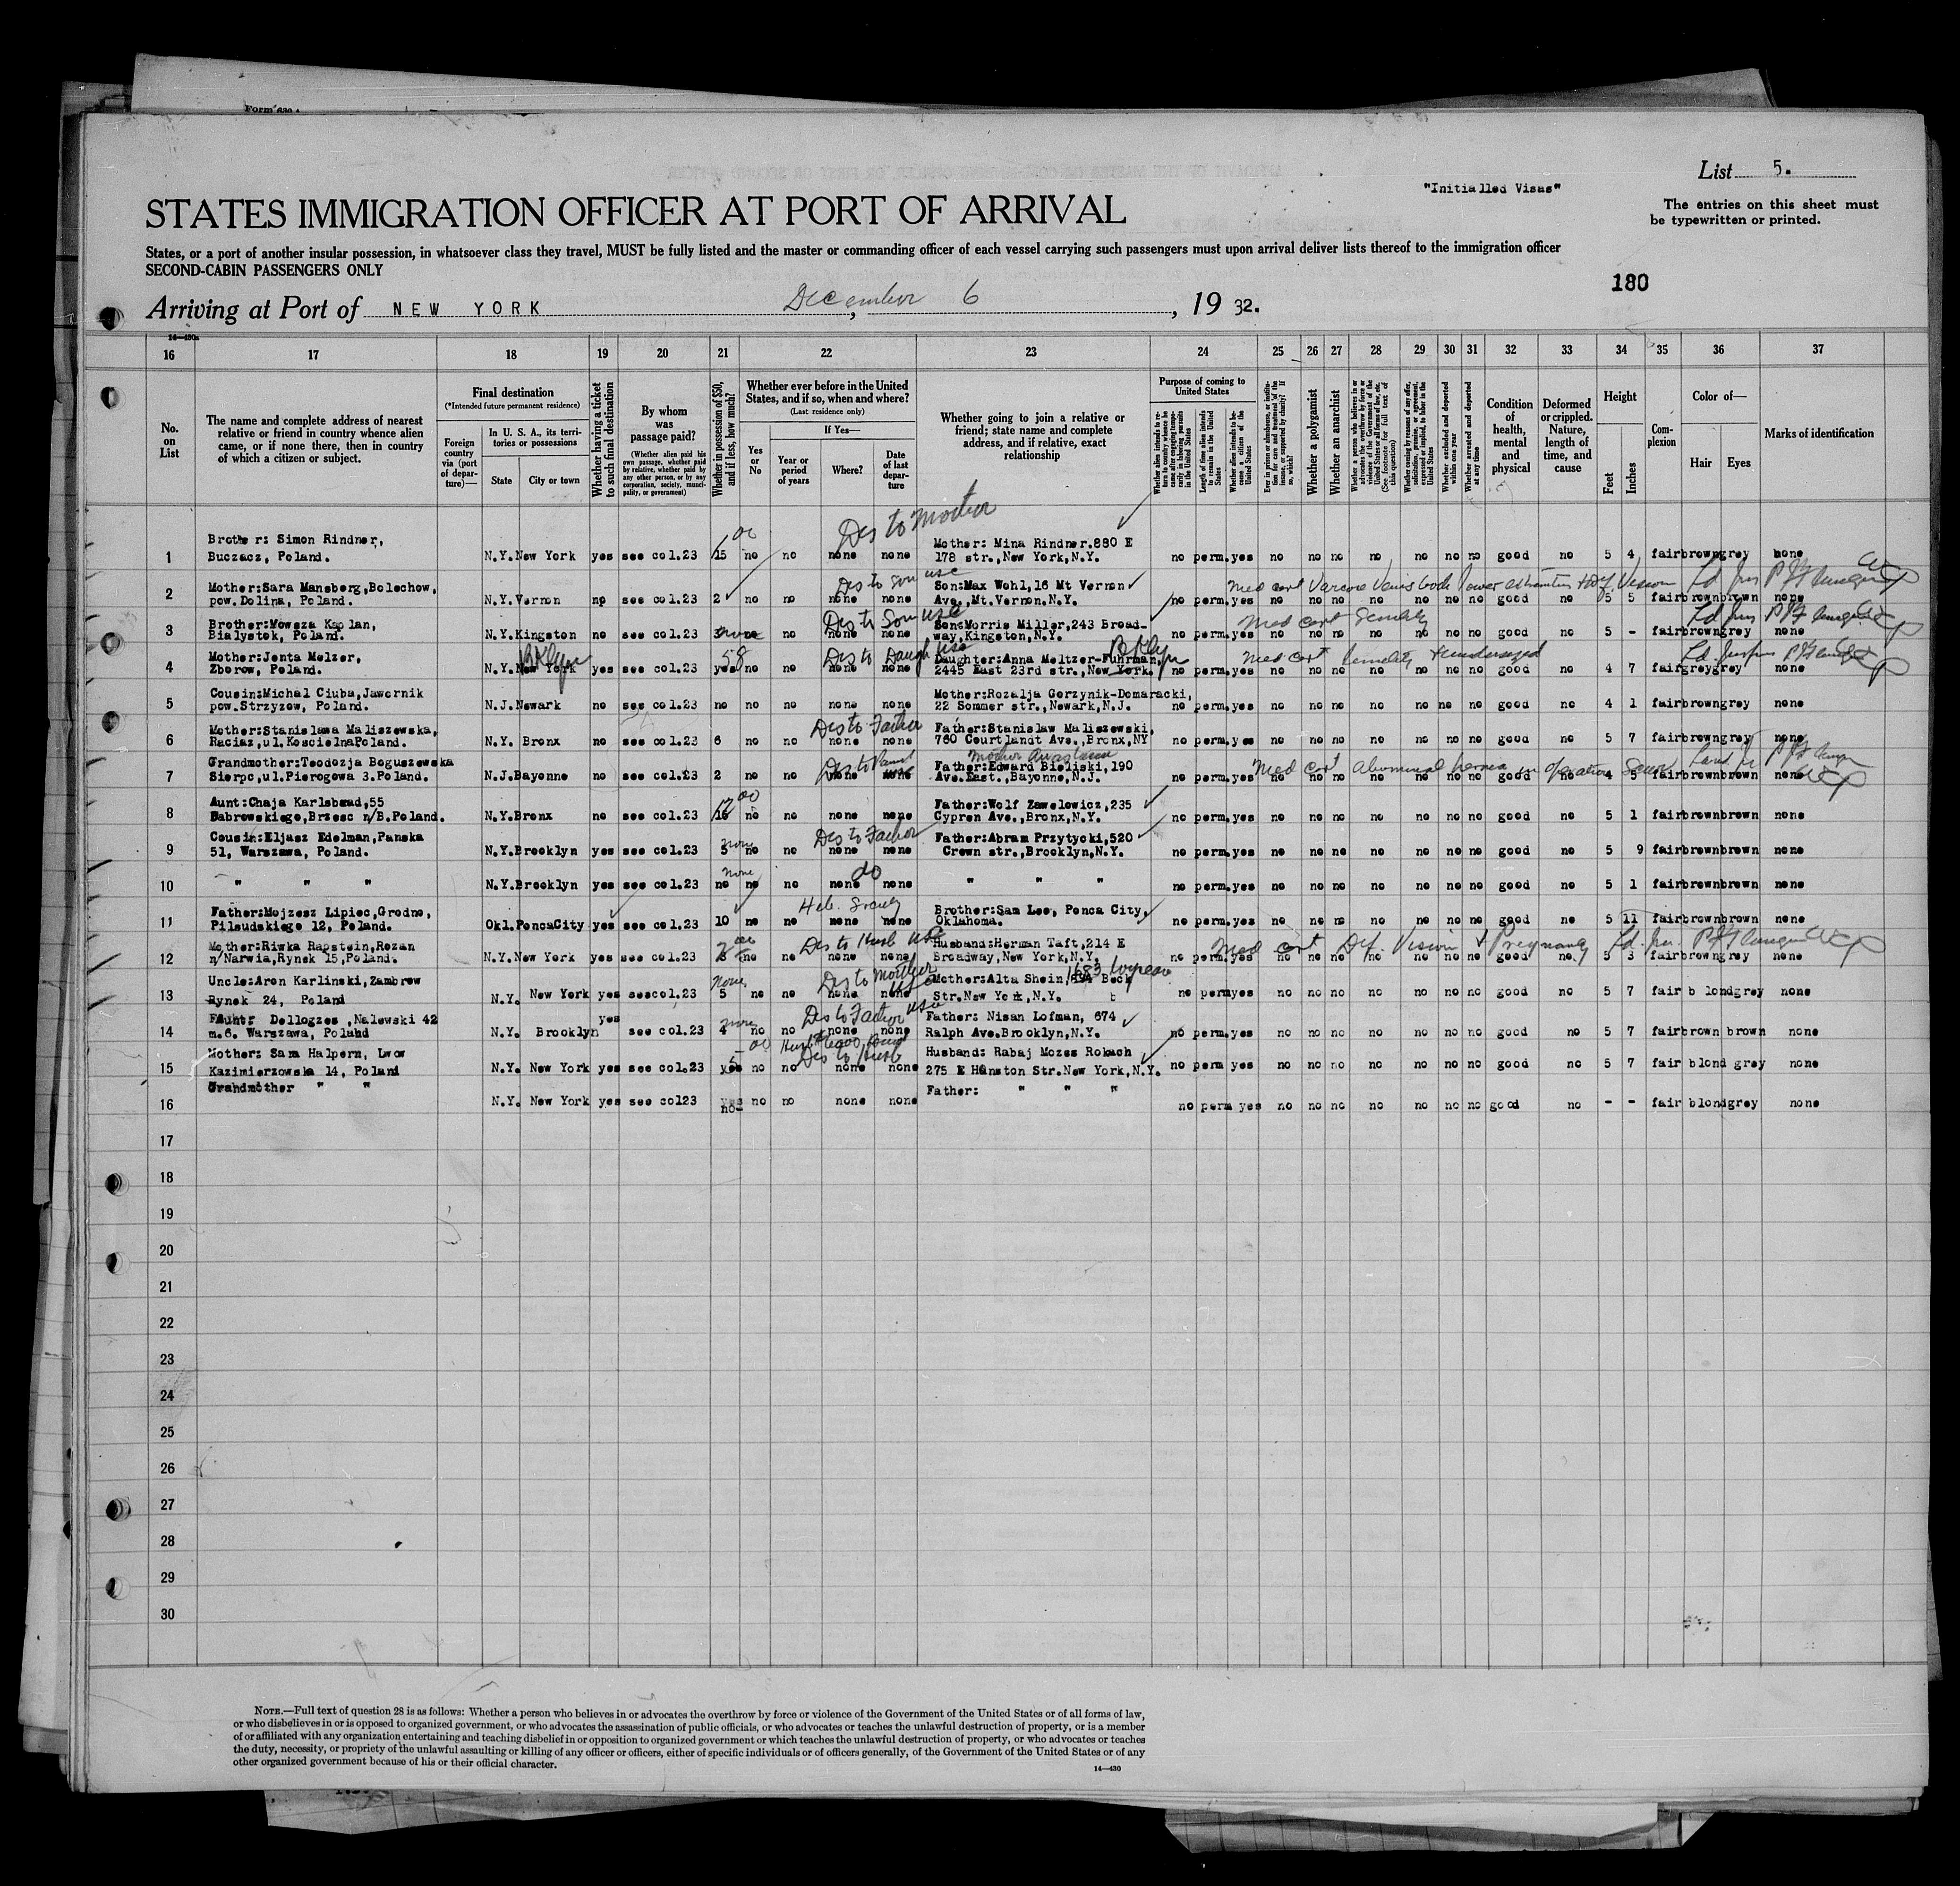 Form 630
List 5.
"Initialled Visas"
The entries on this sheet must
be typewritten or printed.
STATES IMMIGRATION OFFICER AT PORT OF ARRIVAL
States, or a port of another insular possession, in whatsoever class they travel, MUST be fully listed and the master or commanding officer of each vessel carrying such passengers must upon arrival deliver lists thereof to the immigration officer
SECOND-CABIN PASSENGERS ONLY
180
Arriving at Port of NEW YORK, December 6, 1932.
14—430a
16 17 18 19 20 21 22 23 24 25 26 27 28 29 30 31 32 33 34 35 36 37
No. on List
The name and complete address of nearest relative or friend in country whence alien came, or if none there, then in country of which a citizen or subject.
Final destination
(*Intended future permanent residence)
Foreign country via (port of departure)—
In U. S. A., its territories or possessions
State City or town
Whether having a ticket to such final destination
By whom was passage paid?
(Whether alien paid his own passage, whether paid by relative, whether paid by any other person, or by any corporation, society, municipality, or government)
Whether in possession of $50, and if less, how much?
Whether ever before in the United States, and if so, when and where?
(Last residence only)
Yes or No
If Yes—
Year or period of years
Where?
Date of last departure
Whether going to join a relative or friend; state name and complete address, and if relative, exact relationship
Purpose of coming to United States
Whether alien intends to return to country whence he came after engaging temporarily in laboring pursuits in the United States
Length of time alien intends to remain in the United States
Whether alien intends to become a citizen of the United States
Ever in prison or almshouse, or institution for care and treatment of the insane, or supported by charity? If so, which?
Whether a polygamist
Whether an anarchist
Whether a person who believes in or advocates the overthrow by force or violence of the Government of the United States or all forms of law, etc. (See footnote for full text of this question)
Whether coming by reason of any offer, solicitation, promise, or agreement, expressed or implied, to labor in the United States
Whether excluded and deported within one year
Whether arrested and deported at any time
Condition of health, mental and physical
Deformed or crippled. Nature, length of time, and cause
Height
Feet Inches
Complexion
Color of—
Hair Eyes
Marks of identification
Des to Mother
1 Brother: Simon Rindner, Buczacz, Poland. N.Y. New York yes see col.23 15 no no none none Mother: Mina Rindner.880 E 178 str.,New York,N.Y. no perm. yes no no no no no no no good no 5 4 fair brown grey none
Des to Son USC
2 Mother:Sara Mansberg,Bolechow, pow.Dolina, Poland. N.Y. Vernon no see col.23 2 no no none none Son:Max Wohl,16 Mt Vernon Ave.,Mt.Vernon.N.Y. no perm. yes no no no no no no no good no 5 5 fair brown brown none
Des to Son USC
Med cert Senility
3 Brother:Mowsza Kaplan, Bialystok, Poland. N.Y. Kingston no see col.23 no none none Son:Morris Miller,243 Broadway,Kingston,N.Y. no perm. yes no no no no no no no good no 5 - fair brown grey none
Bklyn 58 Des to Daugh USC Bklyn
Med cert Senility + undersized
4 Mother:Jenta Melzer, Zborow, Poland. N.Y. New York yes see col.23 yes no no none none Daughter:Anna Meltzer-Fuhrman, 2445 East 23rd str.,New York. no perm. yes no no no no no no no good no 4 7 fair grey grey none
5 Cousin:Michal Ciuba,Jawornik pow.Strzyzow, Poland. N.J. Newark no see col.23 no no no none none Mother:Rozalja Gorzynik-Domaracki, 22 Sommer str.,Newark,N.J. no perm. yes no no no no no no no good no 4 1 fair brown grey none
Des to Father
6 Mother:Stanislawa Maliszewska, Raciaz,ul.KoscielnaPoland. N.Y. Bronx no see col.23 6 no no none none Father:Stanislaw Maliszewski, 760 Courtlandt Ave.,Bronx,NY no perm. yes no no no no no no no good no 5 7 fair brown grey none
Mother
Med cert
7 Grandmother:Teodozja Boguszewska Sierpc,ul.Pierogowa 3.Poland. N.J. Bayonne no see col.23 2 no no none none Father:Edward Bieliski,190 Ave.East.,Bayonne,N.J. no perm. yes no no no no no no no good no 4 5 fair brown brown none
8 Aunt:Chaja Karlsbaad,55 Dabrowskiego,Brzesc n/B.Poland. N.Y. Bronx no see col.23 no no none none Father:Wolf Zawelowicz,235 Cypren Ave.,Bronx,N.Y. no perm. yes no no no no no no no good no 5 1 fair brown brown none
none Des to Father
9 Cousin:Eljasz Edelman,Panska 51, Warszawa, Poland. N.Y. Brooklyn yes see col.23 5 no no none none Father:Abram Przytycki,520 Crown str.,Brooklyn,N.Y. no perm. yes no no no no no no no good no 5 9 fair brown brown none
none do
10 " " " N.Y. Brooklyn yes see col.23 no no no none none " " " no perm. yes no no no no no no no good no 5 1 fair brown brown none
11 Father:Mojzesz Lipiec,Grodno, Pilsudskiego 12, Poland. Okl. PoncaCity yes see col.23 10 no no none none Brother:Sam Lee, Ponca City, Oklahoma. no perm. yes no no no no no no no good no 5 11 fair brown brown none
Des to Husb USC
Med cert Def. Vision + Pregnancy
12 Mother:Riwka Rapstein,Rozan n/Narwia,Rynek 15,Poland. N.Y. New York yes see col.23 no no none none Husband:Herman Taft,214 E Broadway,New York,N.Y. no perm. yes no no no no no no no good no 5 3 fair brown grey none
None Des to Mother USC
13 Uncle:Aron Karlinski,Zambrow Rynek 24, Poland N.Y. New York yes see col.23 5 no no none none Mother:Alta Shein, Beck Str.New York,N.Y. no perm yes no no no no no no no good no 5 7 fair blond grey none
none Des to Father USC
14 Aunt: Dellogzes ,Nalewski 42 m.6. Warszawa, Poland N.Y. Brooklyn yes see col.23 4 no no none none Father: Nisan Lofman, 674 Ralph Ave.Brooklyn,N.Y. no perm. yes no no no no no no no good no 5 7 fair brown brown none
Des to Husb
15 Mother: Sara Halpern, Lwow Kazimierzowska 14, Poland N.Y. New York yes see col.23 yes no no none none Husband: Rabaj Mozes Rokach 275 E Hunston Str.New York,N.Y. no perm yes no no no no no no no good no 5 7 fair blond grey none
16 Grandmother " " N.Y. New York yes see col23 no no no none none Father: " " " no perm yes no no no no no no no good no - - fair blond grey none
17
18
19
20
21
22
23
24
25
26
27
28
29
30
NOTE.—Full text of question 28 is as follows: Whether a person who believes in or advocates the overthrow by force or violence of the Government of the United States or of all forms of law,
or who disbelieves in or is opposed to organized government, or who advocates the assassination of public officials, or who advocates or teaches the unlawful destruction of property, or is a member
of or affiliated with any organization entertaining and teaching disbelief in or opposition to organized government or which teaches the unlawful destruction of property, or who advocates or teaches
the duty, necessity, or propriety of the unlawful assaulting or killing of any officer or officers, either of specific individuals or of officers generally, of the Government of the United States or of any
other organized government because of his or their official character.
14—430